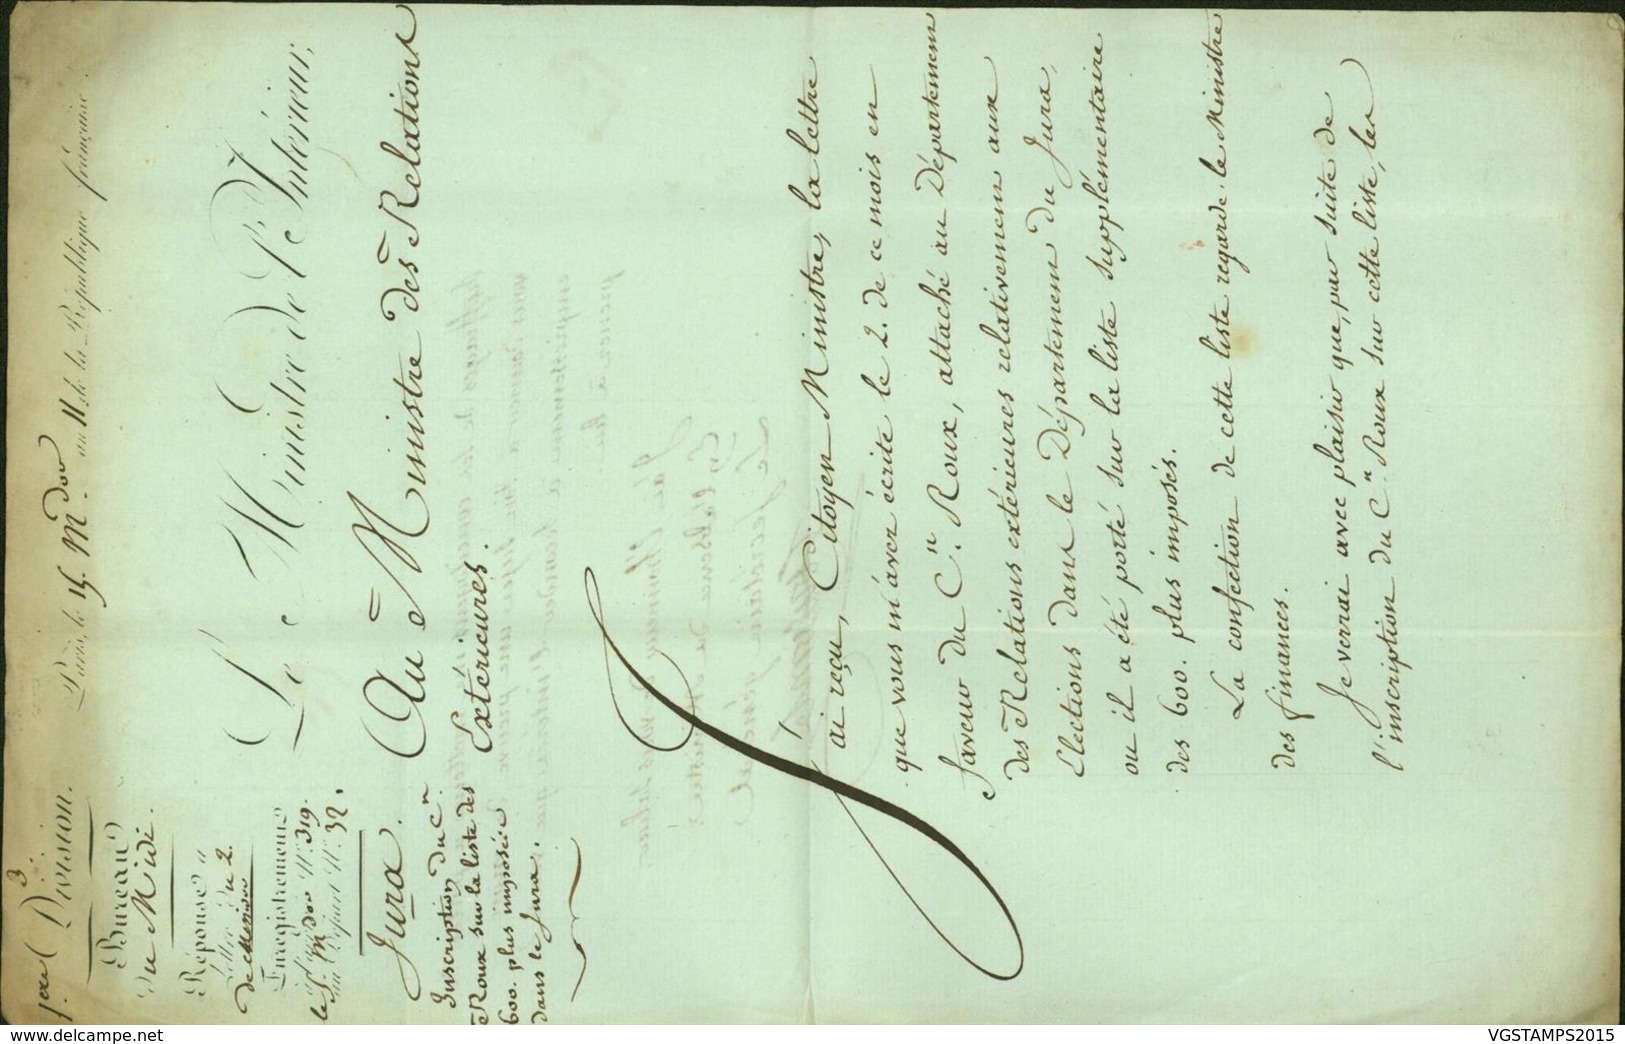 1ere Division.
3
Bureau
du Midi.
Réponse à
Lettre du 2.
de ce mois
Enregistrement
le 5. Mdor N.° 319.
au Départ N.° 32.
Paris, le 15. Mdor an 11 de la République française
Le Ministre de l'Intérieur,
Au Ministre des Relations
Extérieures.
Jura.
Inscription du Cn.
Roux sur la liste des
600. plus imposés
dans le Jura.
J'ai reçu, Citoyen Ministre, la lettre
que vous m'avez écrite le 2. de ce mois en
faveur du Cn. Roux, attaché au Département
des Relations extérieures relativement aux
Elections dans le Département du Jura,
ou il a été porté sur la liste supplémentaire
des 600. plus imposés.
La confection de cette liste regarde le Ministre
des finances.
Je verrai avec plaisir que, par suite de
l'inscription du Cn Roux sur cette liste, les
VGSTAMPS2015